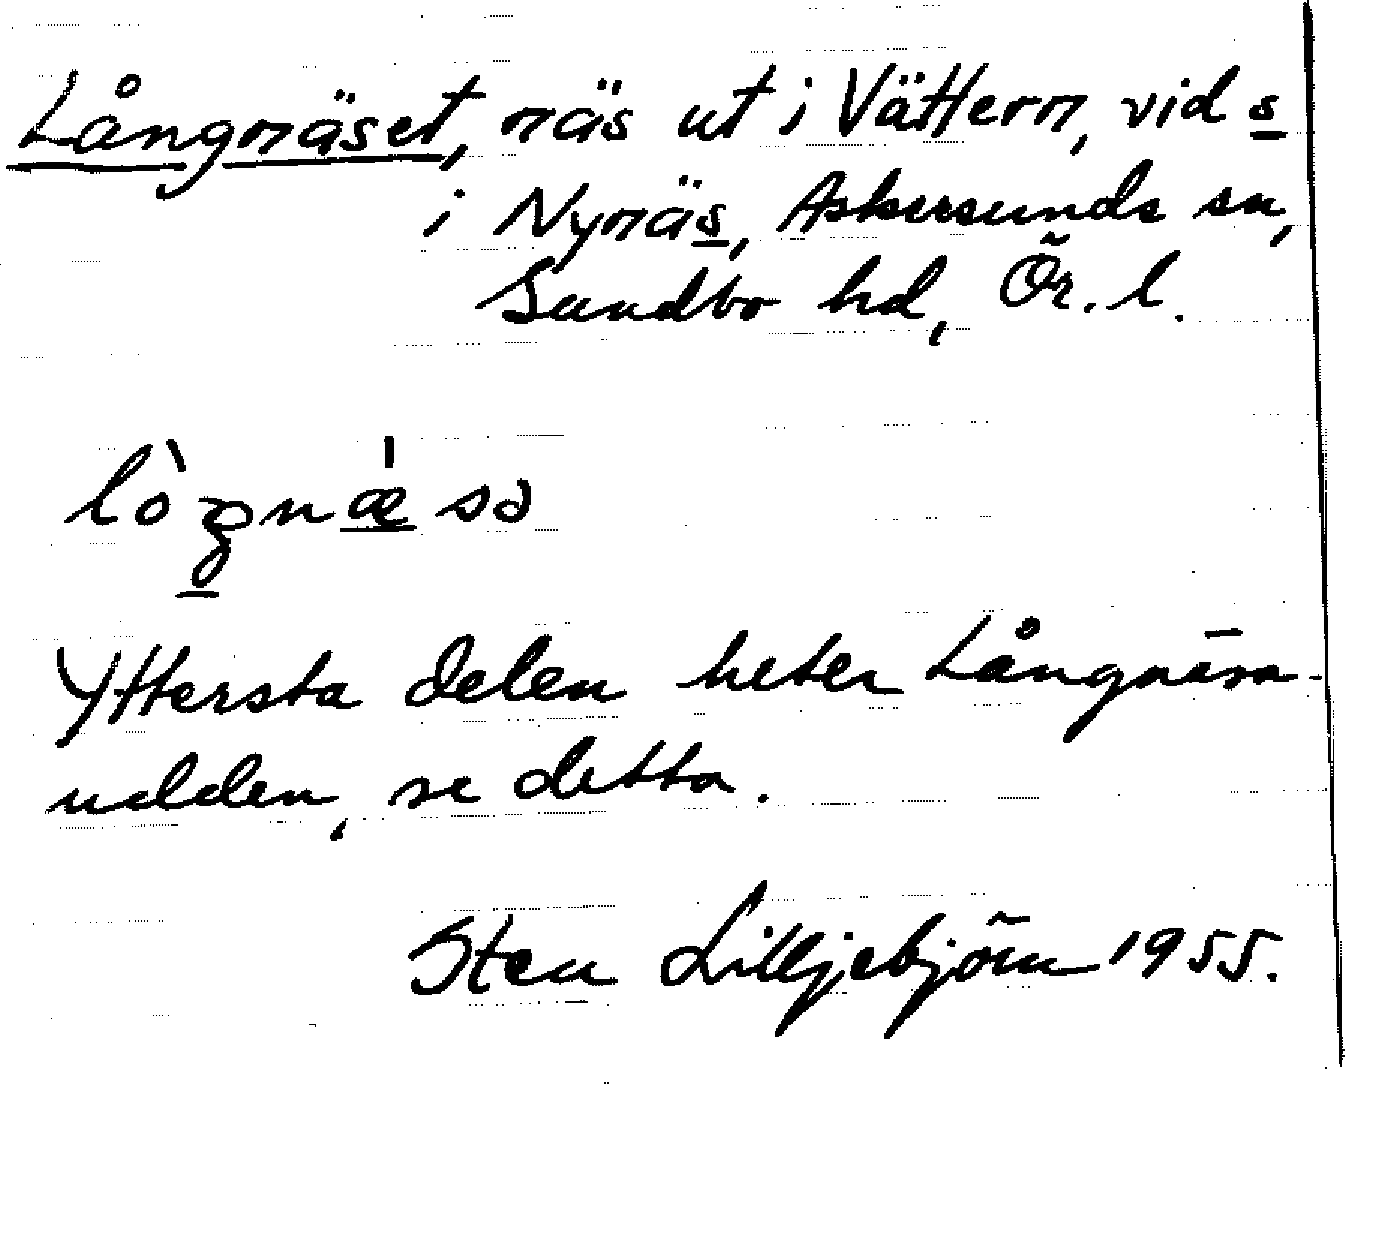 Långnäset, näs ut i Vättern, vid s
i Nynäs, Askersunds sn,
Sundbo hd, Ör. l.
Yttersta delen heter Långnäsa-
udden, se detta.
Sten Lilljebjörn 1955.